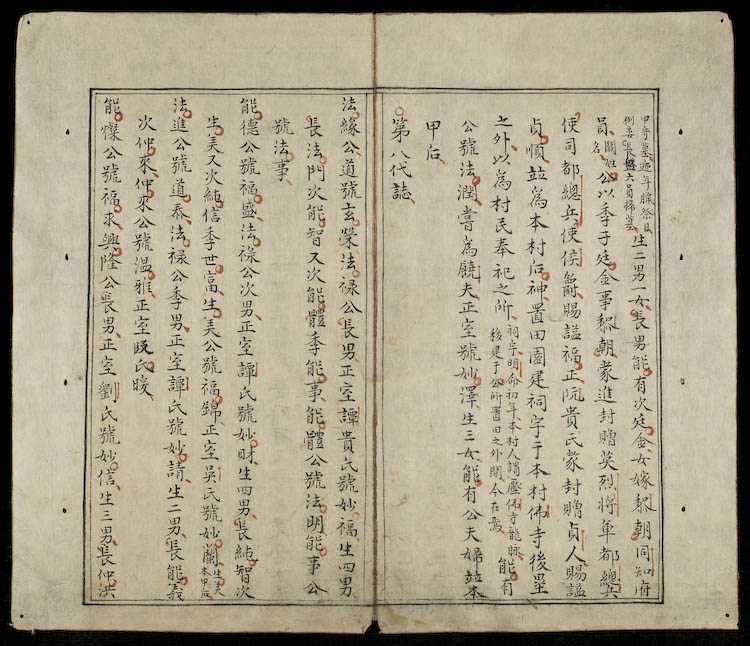 甲亭墓遞年臘祭日例壵長盤六員掃墓生二男一女長男能有次廷金女嫁黎朝同知府
員名關姓公以季子廷金事黎朝蒙進封贈英烈將軍都總兵
使司都總兵使侯爵賜謚福正阮貴氏蒙封贈貞人賜謚
貞順竝為本村后神置田園建祠宇于本村佛寺後壘
之外以為村民奉祀之所祠宇明命初年本村人謂壓佛寺龍脉移建于公所置田之外閭今在焉能有
公號法潤嘗為饒夫正室號妙澤生三女能有公夫婦竝本
甲后
第八代誌
法緣公道號玄榮法祿公長男正室譚貴氏號妙福生四男
長法門次能智又次能體季能事能體公號法明能事公
號法事
能德公號福盛法祿公次男正室譚氏號妙財生四男長純智次
生美又次純信季世富生美公號福錦正室吳氏號妙蘭生美夫本甲后
法進公號道泰法祿公季男正室譚氏號妙請生二男長能義
次仲來仲來公號溫雅正室阮氏暖
能燦公號福來興隆公長男正室劉氏號妙信生三男長仲洪